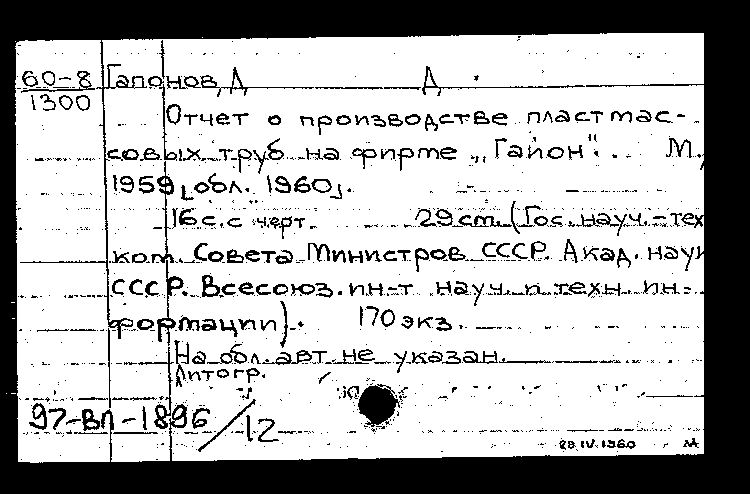 60-8 Гапонов, Д Д.
1300
Отчет о производстве пластмас-
совых труб на фирме „Гайон". М.,
1959 [обл. 1960].
16 с. с черт. 29 см. (Гос. науч.-тех
ком. Совета Министров СССР. Акад. наук
СССР. Всесоюз. ин-т науч. и техн. ин-
формации). 170 экз.
На обл. авт. не указан.
Литогр.
97-ВП-1896/12
28.IV.1960 М